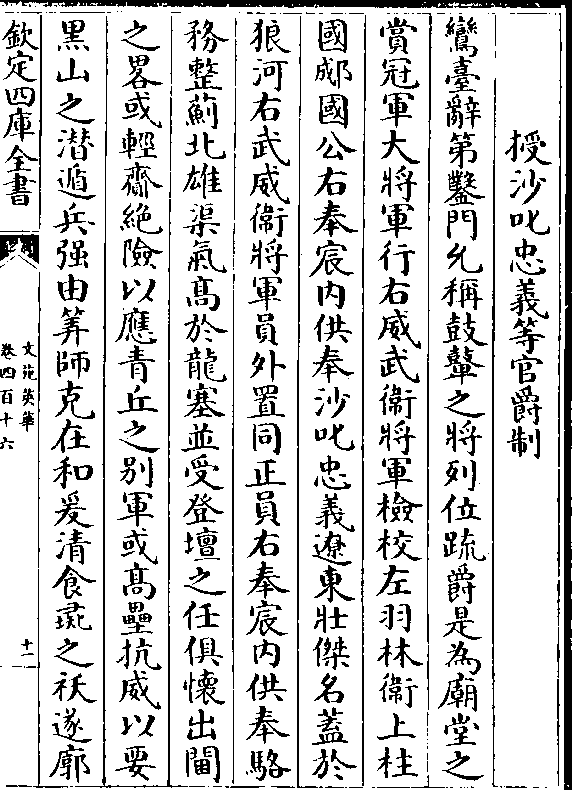 授沙吒忠義等官爵制
鸞臺辭第鑿門允稱鼓鼙之將列位疏爵是為廟堂之
賞冠軍大將軍行右威武衛將軍檢校左羽林衛上柱
國郕國公右奉宸内供奉沙吒忠義遼東壯傑名蓋於
狼河右武威衛將軍員外置同正員右奉宸内供奉駱
務整薊北雄渠氣髙於龍塞並受登壇之任俱懐出閫
之畧或輕齎絶險以應青丘之别軍或髙壘抗威以要
黒山之潜遁兵强由筭師克在和爰清食之祅遂廓
欽定四庫全書
文苑英華
卷四百十六
十二